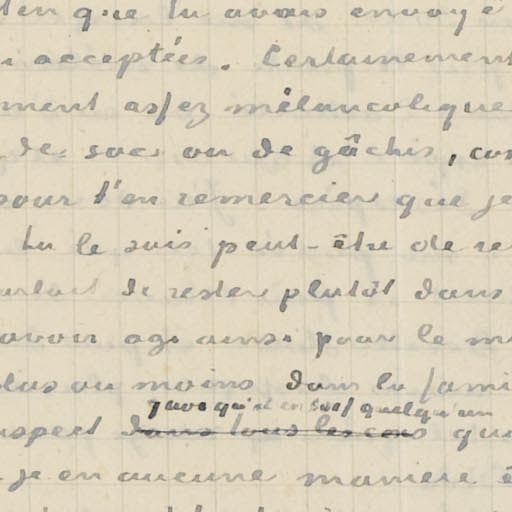 ien que tu avais envoyé
acceptées. Certainement
ment assez mélancolique
de sac ou de gâchis, com
pour t'en remercier que je
tu le sais peut-être de re
de rester plutôt dans
avoir agi ainsi pour le mi
plus ou moins dans la fami
quelqu'un
respect dans tous les cas que
je en aucune manière